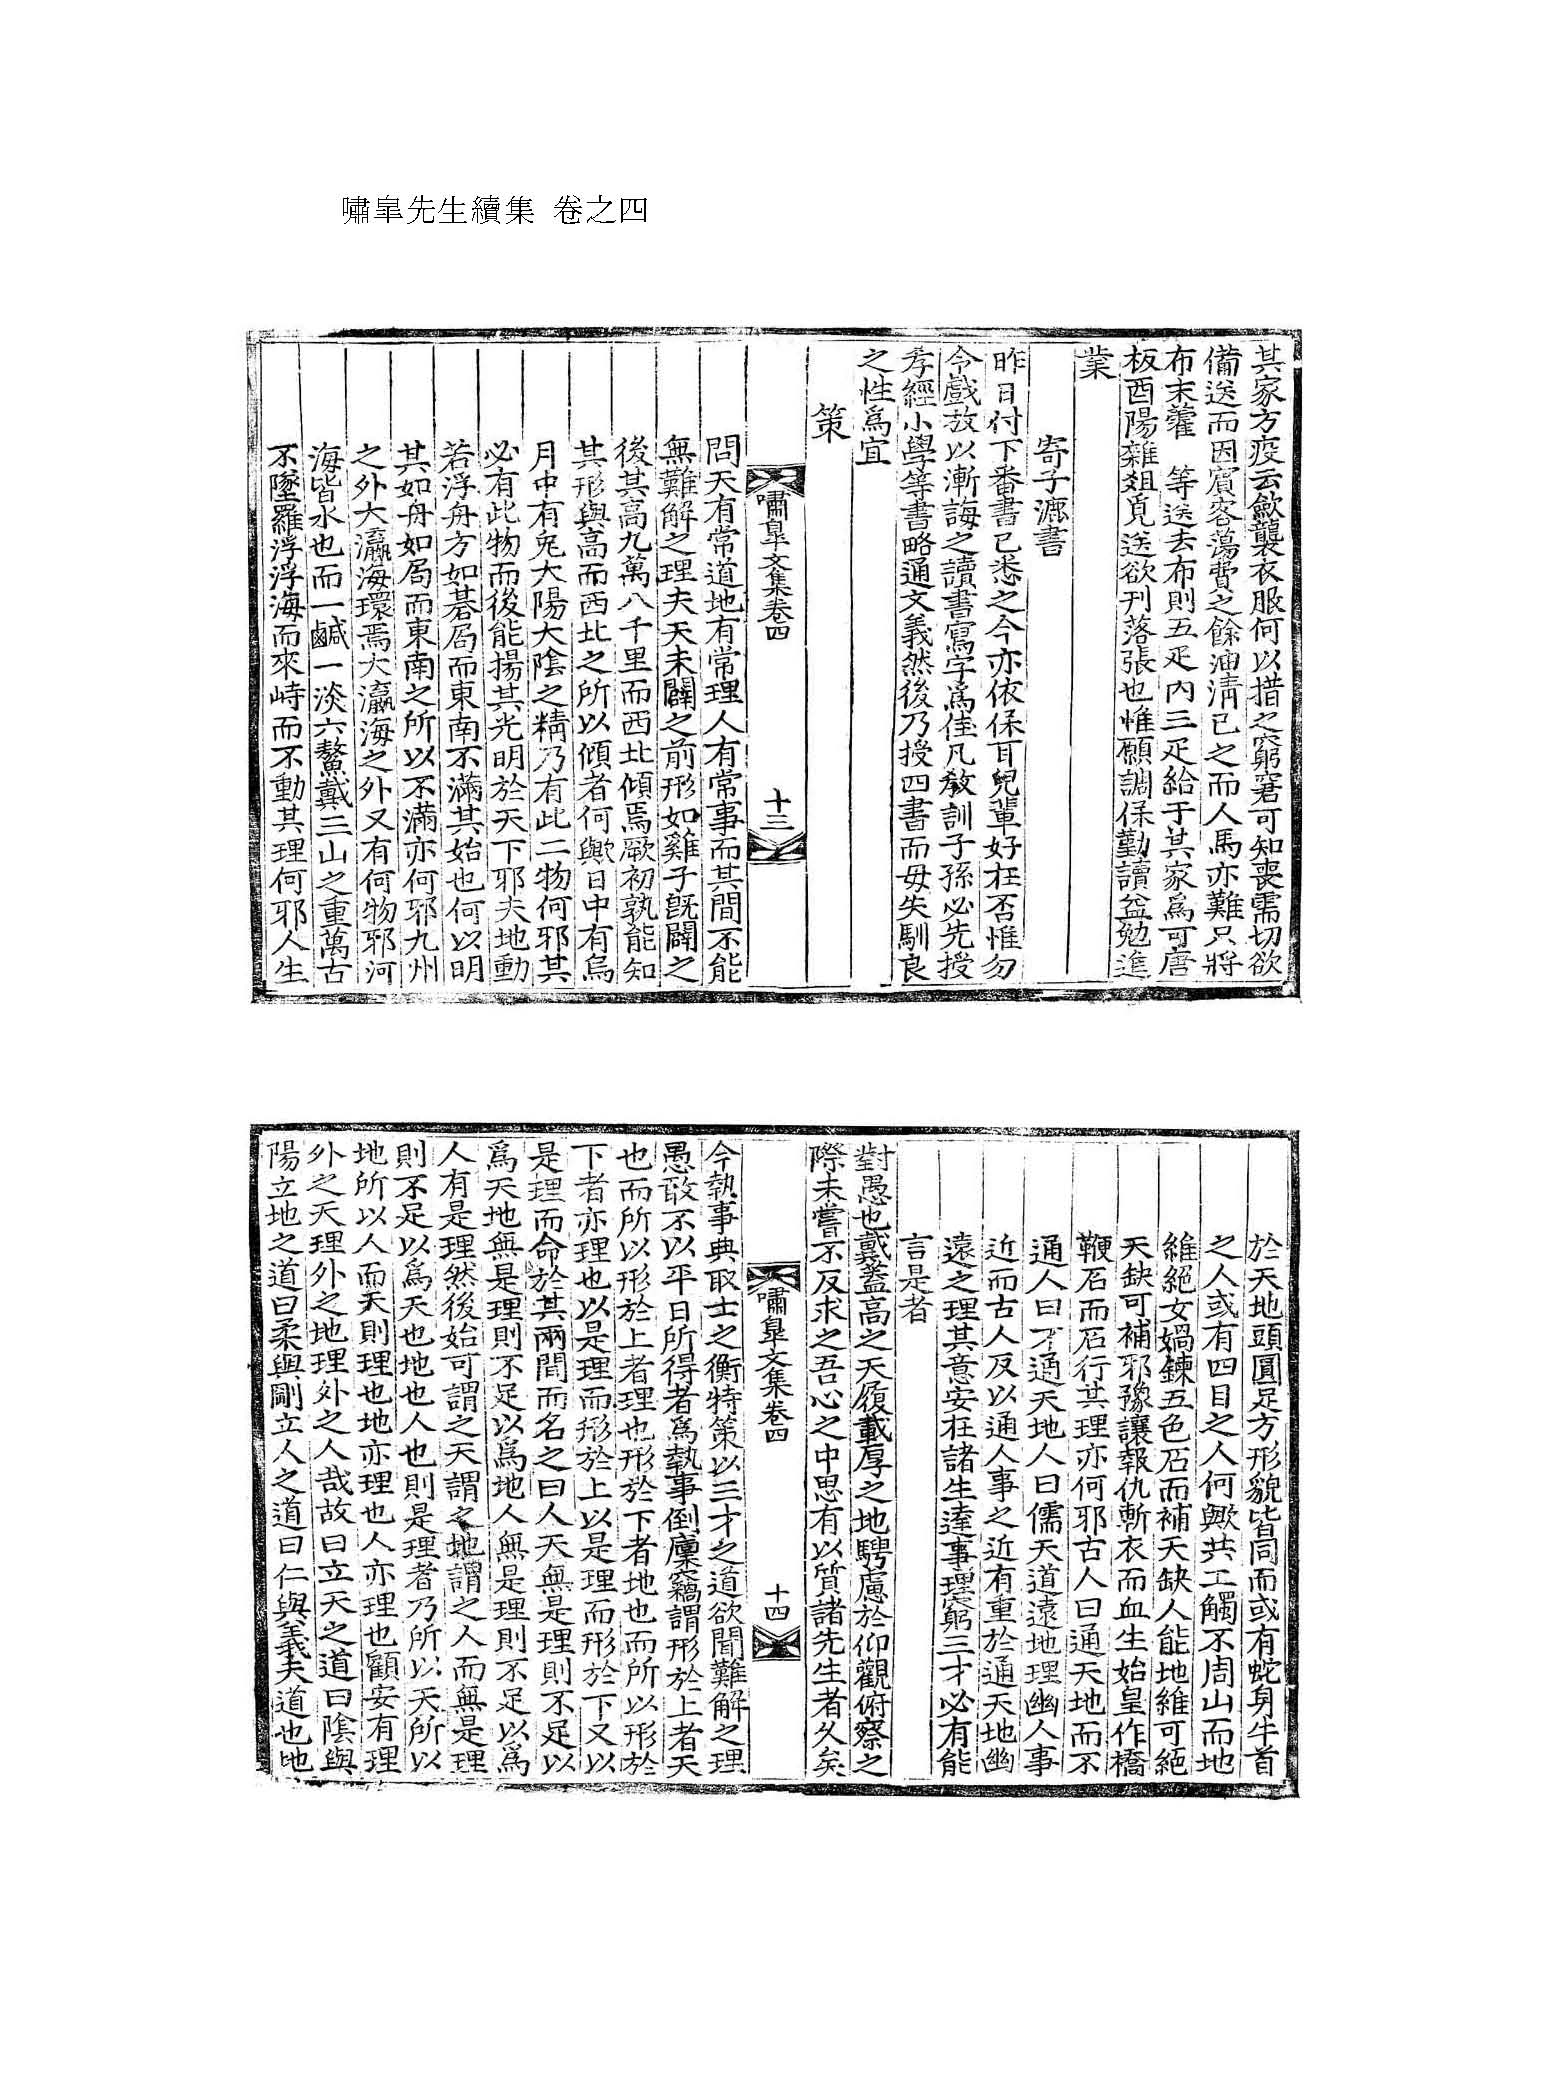 嘯皐先生續集 卷之四
其家方疫云歛襲衣服何以措之窮窘可知喪需切欲
備送而因賓客蕩費之餘油淸已之而人馬亦難只將
布末藿 等送去布則五疋內三疋給于其家爲可唐
板酉陽雜爼覓送欲刊落張也惟願調保勤讀益勉進
業
寄子漉書
昨日付下番書已悉之今亦依保耳兒輩好在否惟勿
令戲放以漸誨之讀書寫字爲佳凡敎訓子孫必先授
孝經小學等書略通文義然後乃授四書而毋失馴良
之性爲宜
策
嘯皐文集卷四
十三
問天有常道地有常理人有常事而其間不能
無難解之理夫天未闢之前形如雞子旣闢之
後其高九萬八千里而西北傾焉厥初孰能知
其形與高而西北之所以傾者何歟日中有烏
月中有兎大陽大陰之精乃有此二物何邪其
必有此物而後能揚其光明於天下邪夫地動
若浮舟方如碁局而東南不滿其始也何以明
其如舟如局而東南之所以不滿亦何邪九州
之外大瀛海環焉大瀛海之外又有何物邪河
海皆水也而一鹹一淡六鰲戴三山之重萬古
不墜羅浮浮海而來峙而不動其理何邪人生
於天地頭圓足方形貌皆同而或有蛇身牛首
之人或有四目之人何歟共工觸不周山而地
維絕女媧鍊五色石而補天缺人能地維可絕
天缺可補邪豫讓報仇斬衣而血生始皇作橋
鞭石而石行其理亦何邪古人曰通天地而不
通人曰才通天地人曰儒天道遠地理幽人事
近而古人反以通人事之近有重於通天地幽
遠之理其意安在諸生達事理窮三才必有能
言是者
對愚也戴蓋高之天履載厚之地騁慮於仰觀俯察之
際未嘗不反求之吾心之中思有以質諸先生者久矣
嘯皐文集卷四
十四
今執事典取士之衡特策以三才之道欲聞難解之理
愚敢不以平日所得者爲執事倒廩竊謂形於上者天
也而所以形於上者理也形於下者地也而所以形於
下者亦理也以是理而形於上以是理而形於下又以
是理而命於其兩間而名之曰人天無是理則不足以
爲天地無是理則不足以爲地人無是理則不足以爲
人有是理然後始可謂之天謂之地謂之人而無是理
則不足以爲天也地也人也則是理者乃所以天所以
地所以人而天則理也地亦理也人亦理也顧安有理
外之天理外之地理外之人哉故曰立天之道曰陰與
陽立地之道曰柔與剛立人之道曰仁與義夫道也地